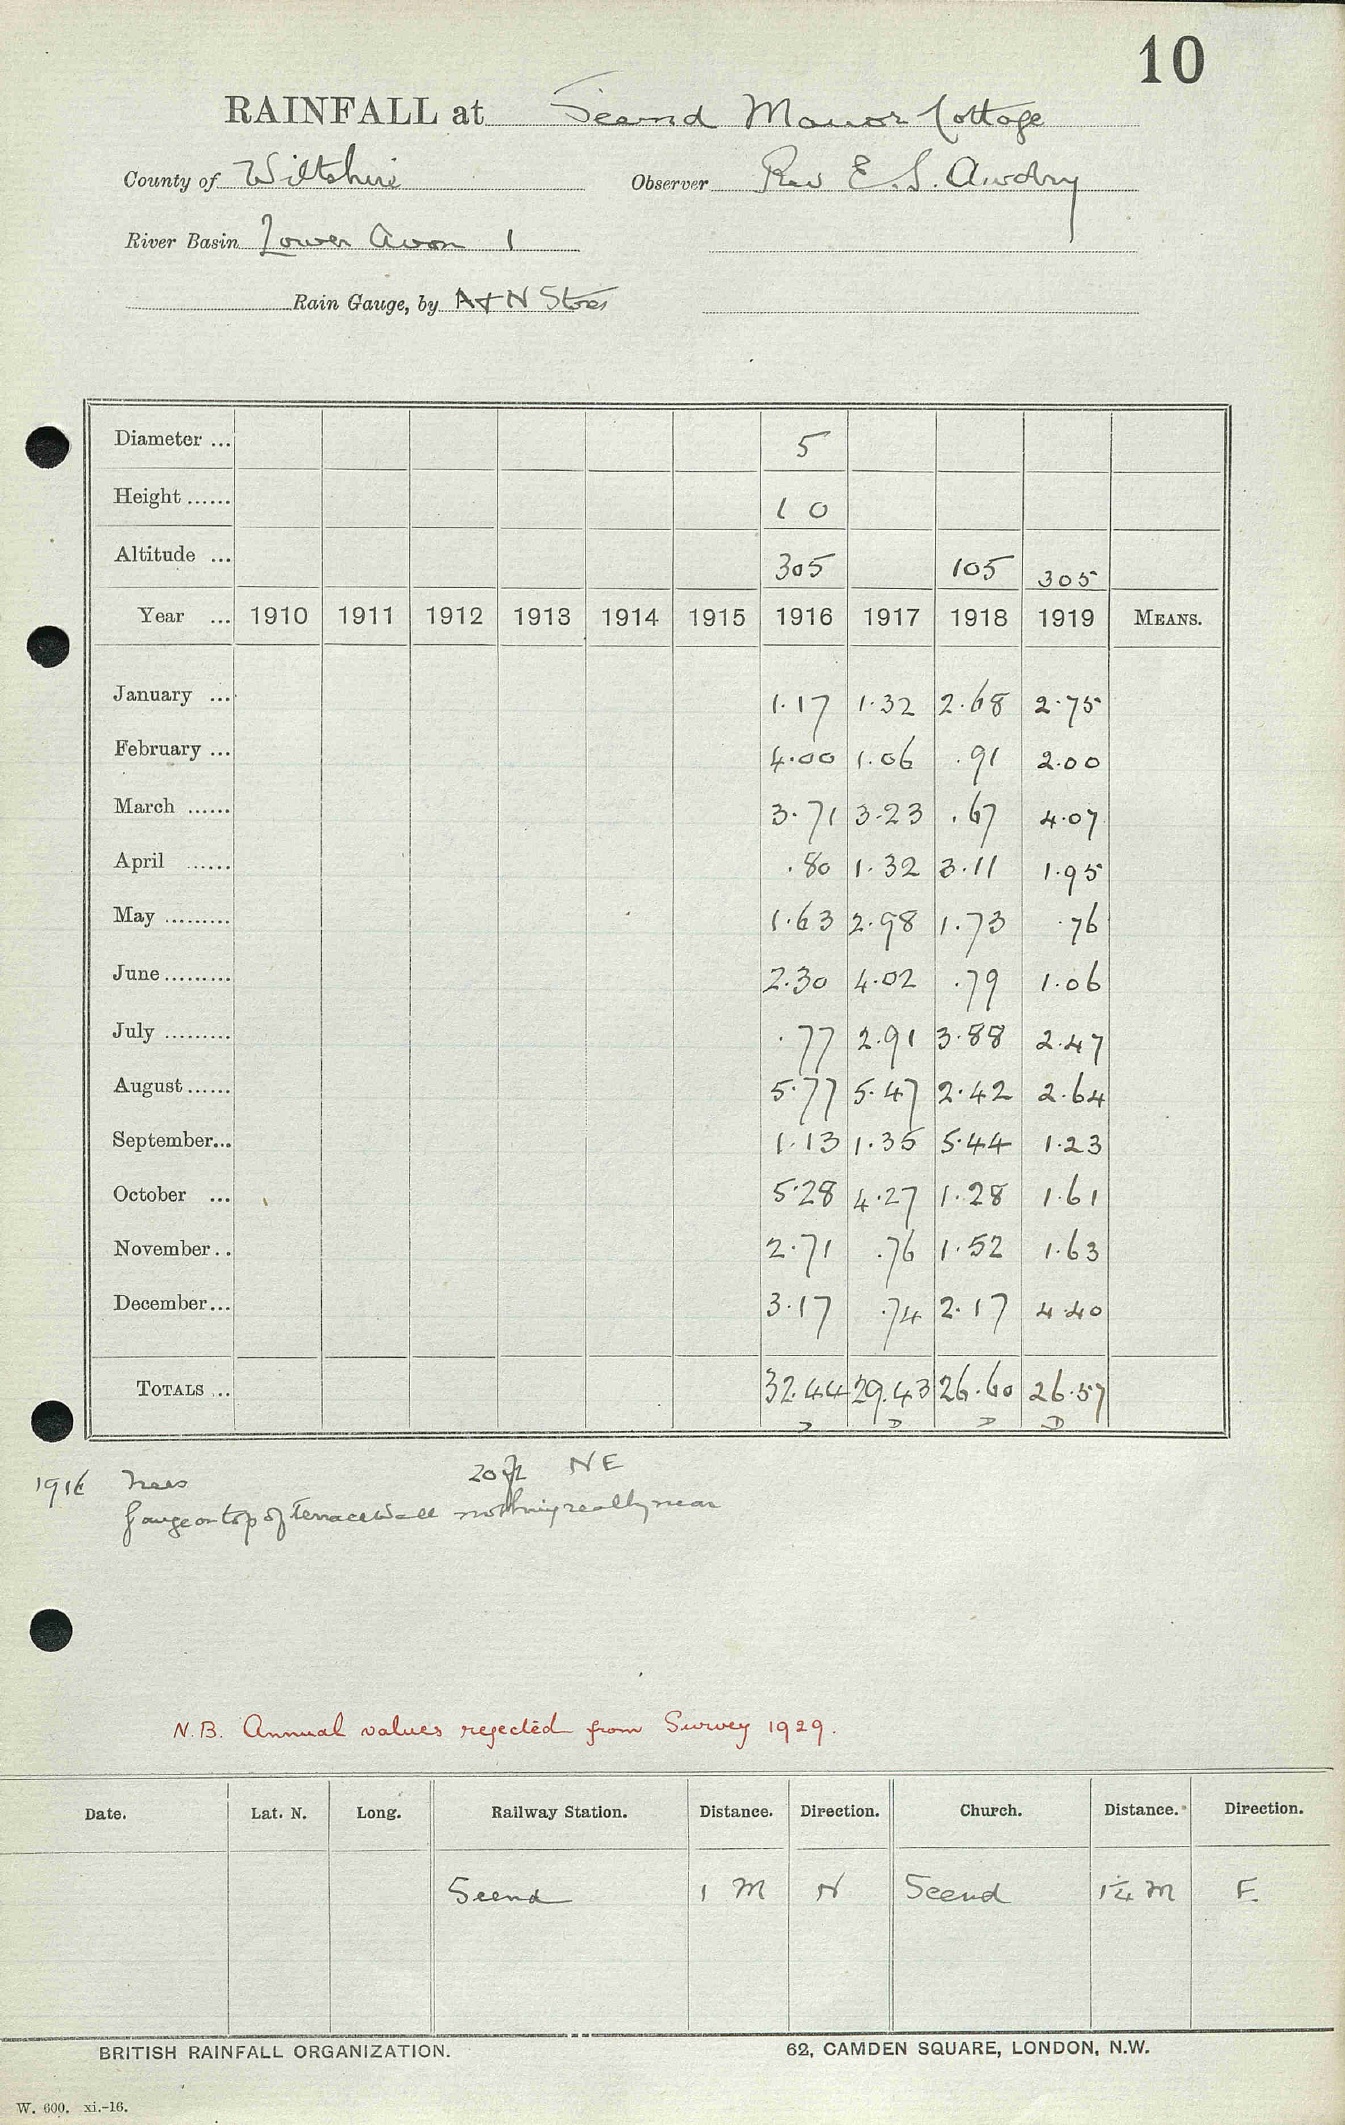 10
RAINFALL at Seend Manor Cottage
County of Wiltshire Observer Rev E. S. Awdry
River Basin Lower Avon 1
Rain Gauge, by A & N Stores
Diameter ... 5
Height ...... 1 0
Altitude ... 305 105 305
Year ... 1910 1911 1912 1913 1914 1915 1916 1917 1918 1919 MEANS.
January ... 1.17 1.32 2.68 2.75
February ... 4.00 1.06 .91 2.00
March ...... 3.71 3.23 .67 4.07
April ...... .80 1.32 3.11 1.95
May ......... 1.63 2.98 1.73 .76
June ......... 2.30 4.02 .79 1.06
July ......... .77 2.91 3.88 2.47
August ...... 5.77 5.47 2.42 2.64
September... 1.13 1.35 5.44 1.23
October ... 5.28 4.27 1.28 1.61
November .. 2.71 .76 1.52 1.63
December... 3.17 .74 2.17 4.40
TOTALS ... 32.44 29.43 26.60 26.57
D D D D
1916 Trees 20 ft NE
Gauge on top of Terrace Wall nothing really near
N.B. Annual values rejected from Survey 1929.
Date. Lat. N. Long. Railway Station. Distance. Direction. Church. Distance. Direction.
Seend 1 M N Seend 1¼ M E.
BRITISH RAINFALL ORGANIZATION. 62, CAMDEN SQUARE, LONDON, N.W.
W. 600. xi.-16.